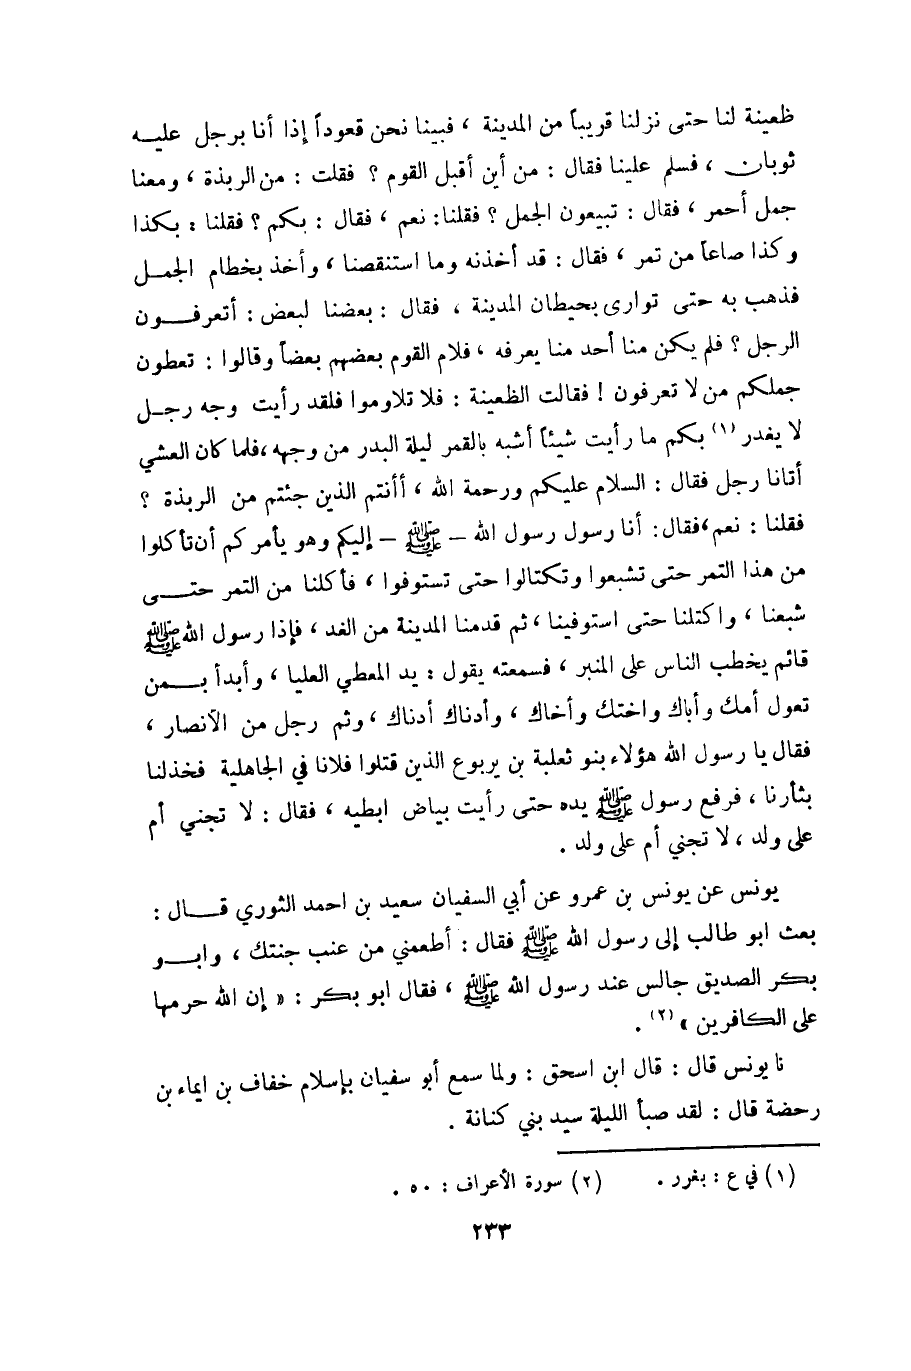 ظعينة لنا حتى نزلنا قريباً من المدينة ، فبينا نحن قعوداً إذا أنا برجل عليـه
ثوبان ، فسلم علينا فقال : من أين أقبل القوم ؟ فقلت : من الربذة ، ومعنا
جمل أحمر ، فقال : تبيعون الجمل ؟ فقلنا: نعم ، فقال : بكم ؟ فقلنا : بكذا
وكذا صاعاً من تمر ، فقال : قد أخذنه وما استنقصنا ، وأخذ بخطام الجمـل
فذهب به حتى توارى بحيطان المدينة ، فقال : بعضنا لبعض : أتعرفـــون
الرجل ؟ فلم يكن منا أحد منا يعرفه ، فلام القوم بعضهم بعضاً وقالوا : تعطون
جملكم من لا تعرفون ! فقالت الظعينة : فلا تلاوموا فلقد رأيت وجه رجـل
لا يغدر (١) بكم ما رأيت شيئاً أشبه بالقمر ليلة البدر من وجهه ،فلما كان العشي
أتانا رجل فقال : السلام عليكم ورحمة الله ، أأنتم الذين جئتم من الربذة ؟
فقلنا : نعم،فقال: أنا رسول رسول الله – ﷺ – إليكم وهو يأمركم أن تأكلوا
من هذا التمر حتى تشبعوا وتكتالوا حتى تستوفوا ، فأكلنا من التمر حتـــى
شبعنا ، واكتلنا حتى استوفينا ، ثم قدمنا المدينة من الغد ، فإذا رسول الله ﷺ
قائم يخطب الناس على المنبر ، فسمعته يقول : يد المعطي العليا ، وأبدأ بـــمن
تعول أمك وأباك واختك وأخاك ، وأدناك أدناك ، وثم رجل من الأنصار ،
فقال يا رسول الله هؤلاء بنو ثعلبة بن يربوع الذين قتلوا فلانا في الجاهلية فخذلنا
بثأرنا ، فرفع رسول ﷺ يده حتى رأيت بياض ابطيه ، فقال : لا تجني أم
على ولد ، لا تجني أم على ولد .
يونس عن يونس بن عمرو عن أبي السفيان سعيد بن احمد الثوري قـــال :
بعث ابو طالب إلى رسول الله ﷺ فقال : أطعمني من عنب جنتك ، وابـــو
بكر الصديق جالس عند رسول الله ﷺ ، فقال ابو بكر : « إن الله حرمها
على الكافرين » (٢) .
نا يونس قال : قال ابن اسحق : ولما سمع أبو سفيان بإسلام خفاف بن ايماء بن
رحضة قال : لقد صبأ الليلة سيد بني كنانة .
(١) في ع : بغرر . (٢) سورة الأعراف : ٥٠ .
٢٣٣